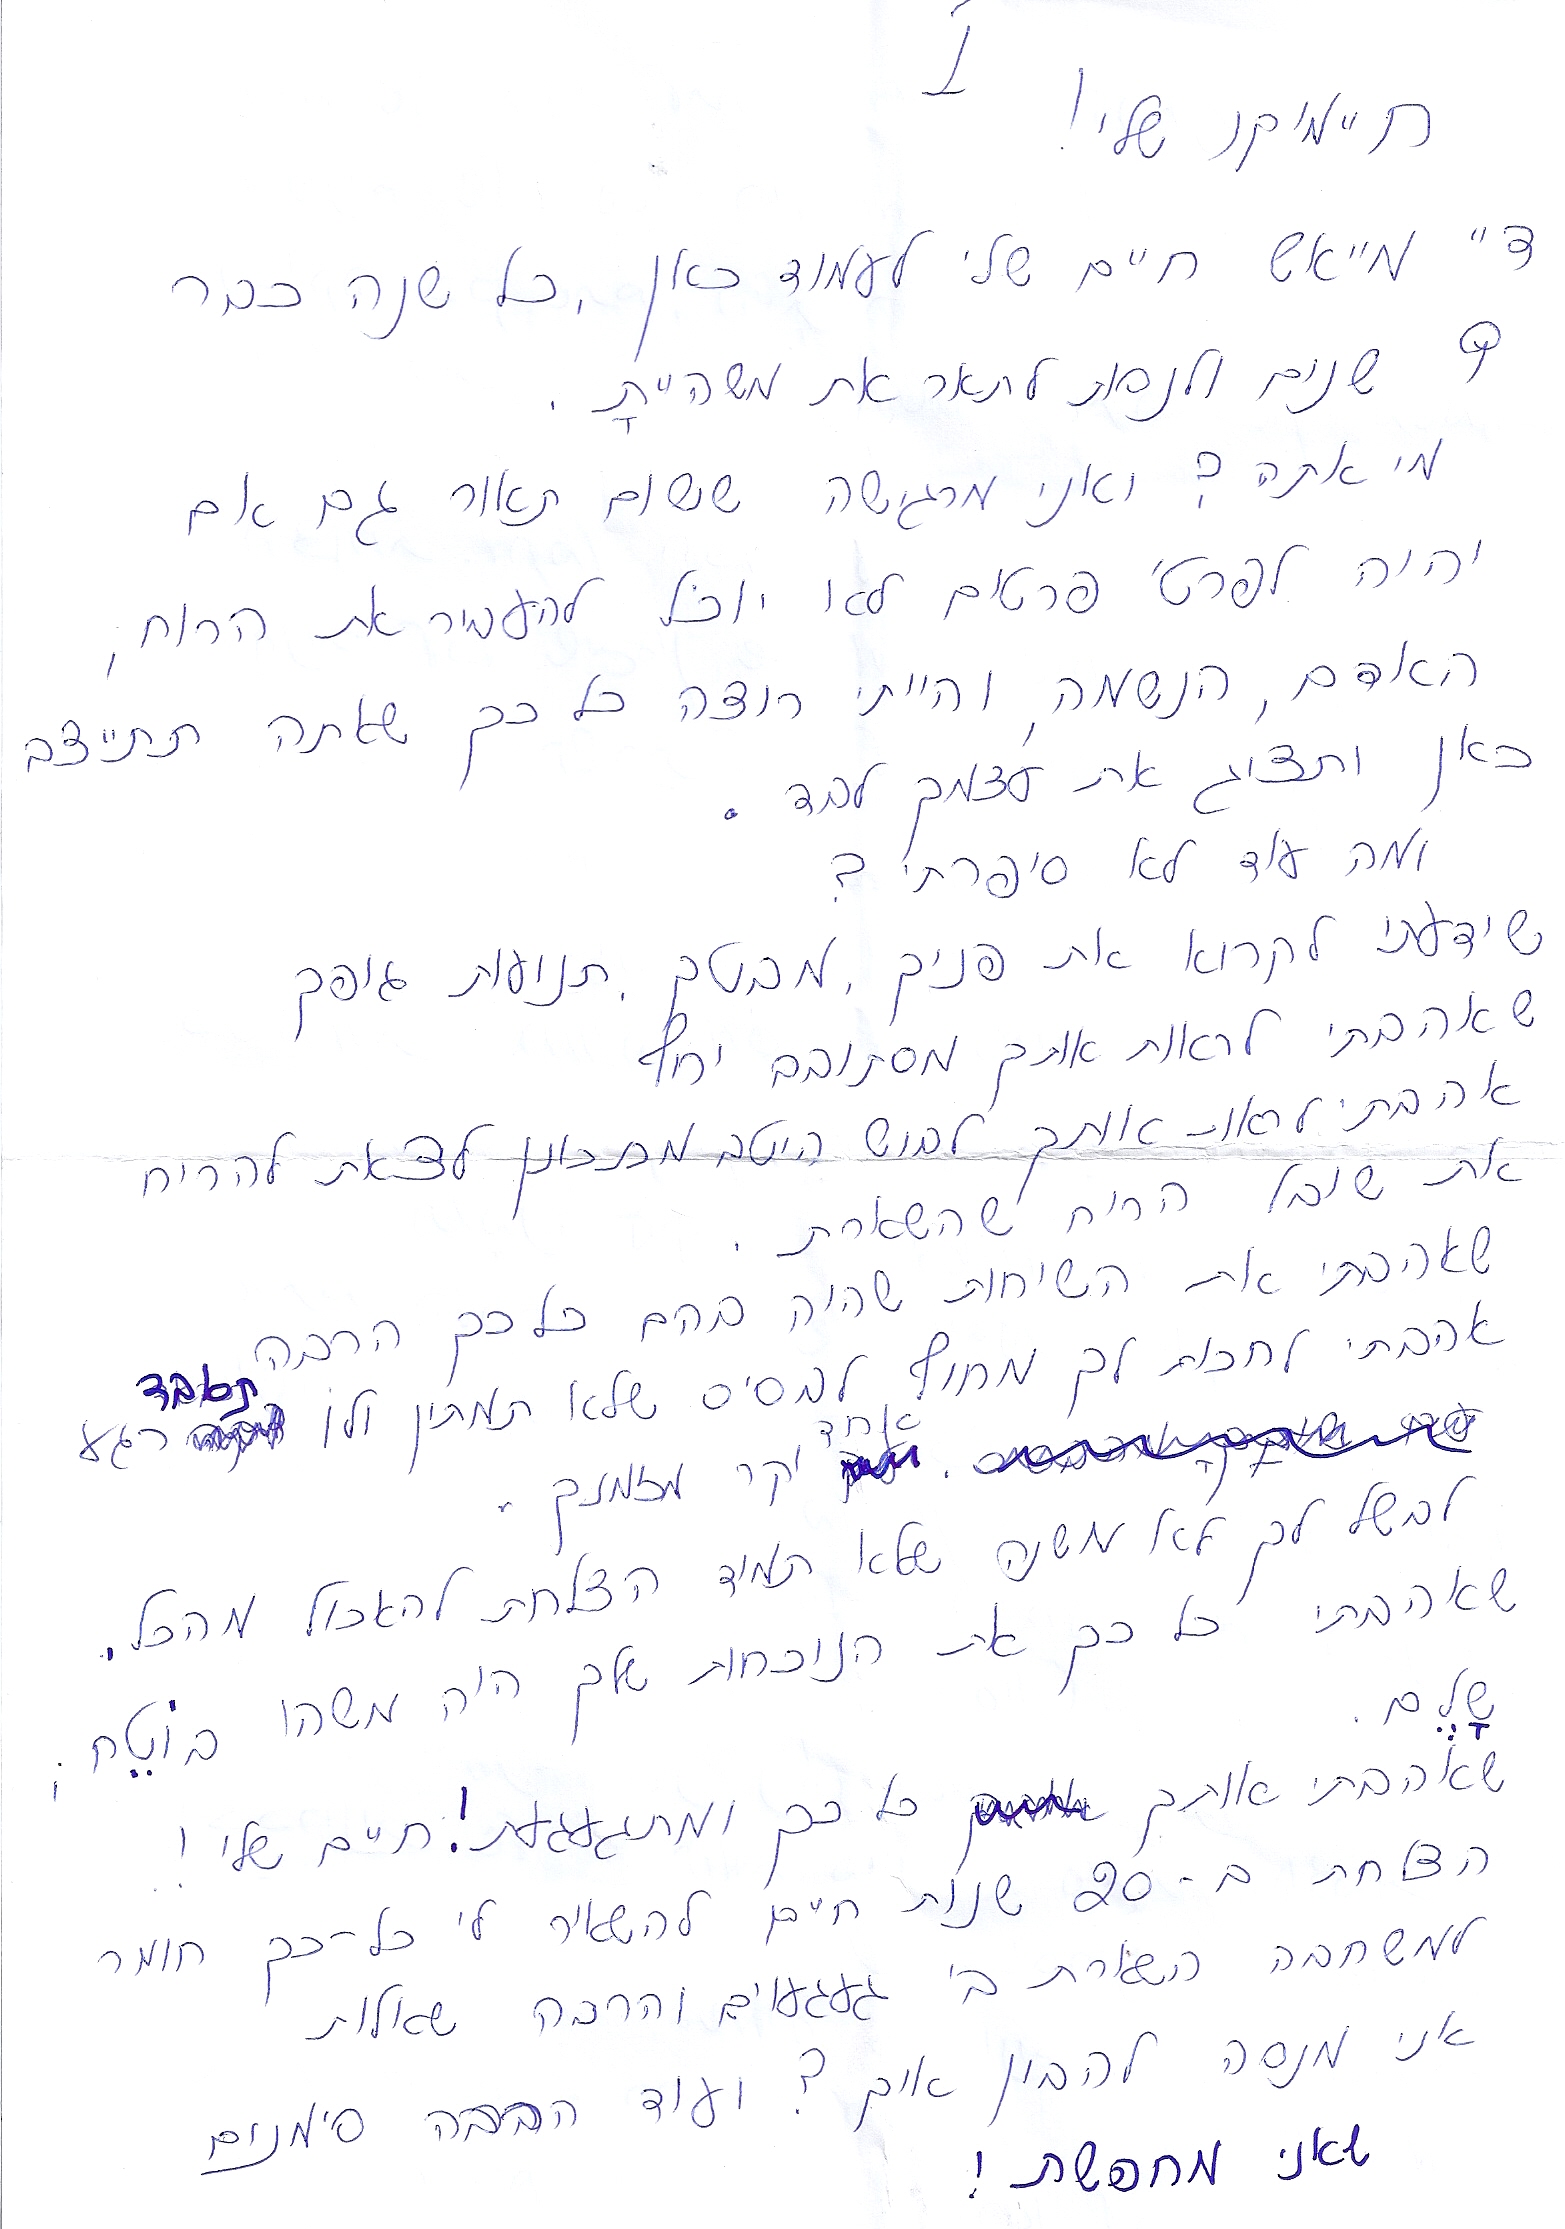 1
חיימיקו שלי!
די מייאש חיים שלי לעמוד כאן, כל שנה כבר
9 שנים ולנסות לתאר את משהייתָ.
מי אתה? ואני מרגישה ששום תאור גם אם
יהיה לפרטי פרטים לא יוכל להעביר את הרוח,
האדם, הנשמה, והייתי רוצה כל כך שאתה תתייצב
כאן ותציג את עצמך לבד.
ומה עוד לא סיפרתי?
שידעתי לקרוא את פניך, מבטך, תנועות גופך
שאהבתי לראות אותך מסתובב יחף
אהבתי לראות אותך לבוש היטב מתכונן לצאת להריח
את שובל הריח שהשארת.
שאהבתי את השיחות שהיה בהם כל כך הרבה
אהבתי לחכות לך מחוץ לבסיס שלא תמתין ולו תאבד רגע
אחד יקר מזמנך.
לבשל לך לא משנה שלא תמיד הצלחת להאכול מהכל.
שאהבתי כל כך את הנוכחות שלך היה משהו בוֹטֵח,
שָלֵם.
שאהבתי אותך כל כך ומתגעגעת! חיים שלי!
הצלחת ב-20 שנות חיים להשאיר לי כל-כך חומר
למשחבה השארת בי געגועים והרבה שאלות
אני מנסה להבין איך? ועוד הרבה סימנים
שאני מחפשת!